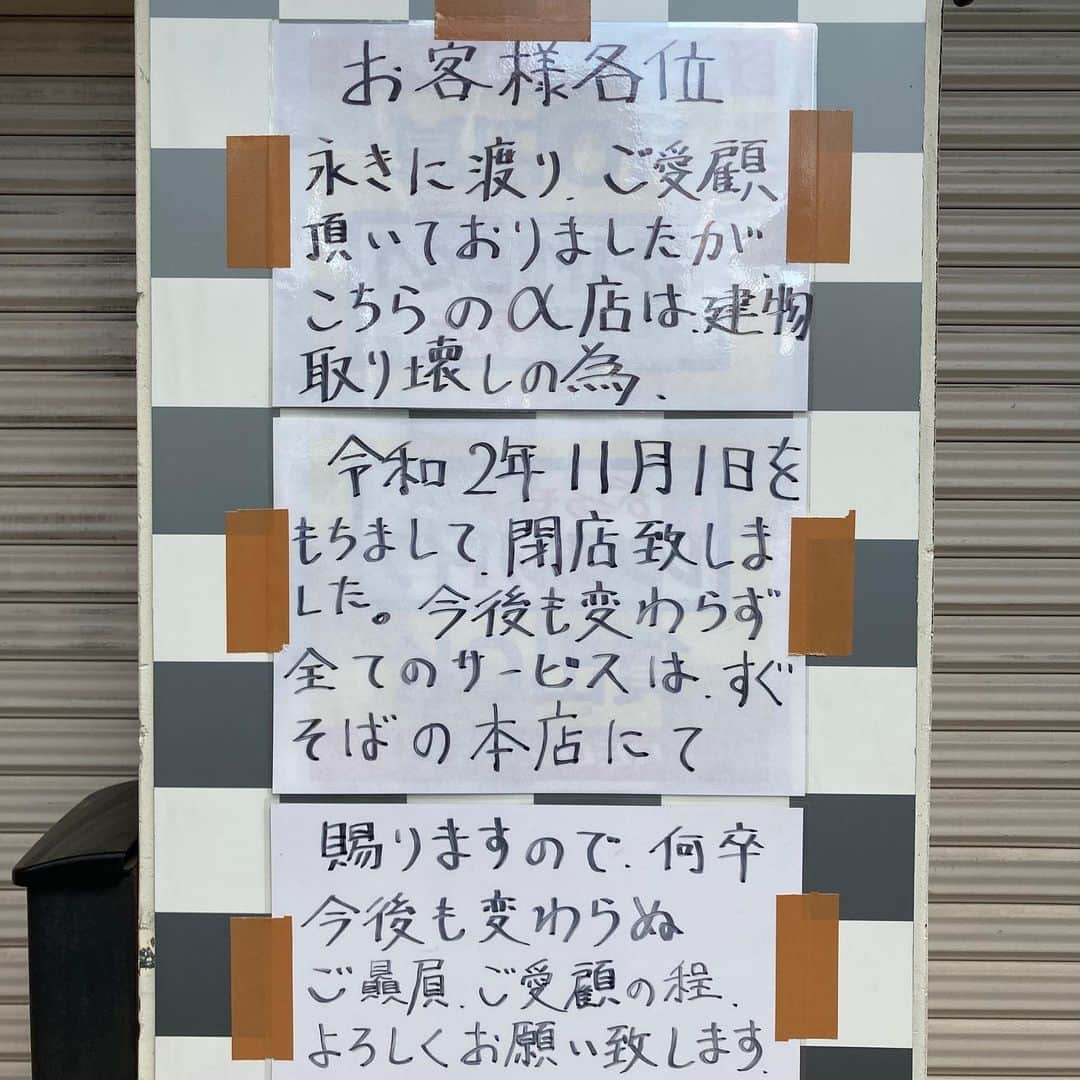 お客様各位
永きに渡り、ご愛顧
頂いておりましたが、
こちらのα店は、建物
取り壊しの為、
令和2年11月1日を
もちまして、閉店致しま
した。今後も変わらず
全てのサービスは、すぐ
そばの本店にて
賜りますので、何卒
今後も変わらぬ
ご贔屓、ご愛顧の程、
よろしくお願い致します。